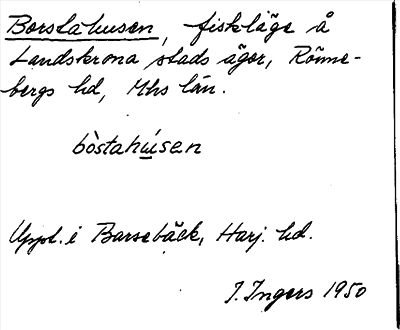 Borstahusen, fiskläge å
Landskrona stads ägor, Rönne-
bergs hd, Mhs län.
bòstahúsen
Uppt. i Barsebäck, Harj. hd.
I. Ingers 1950